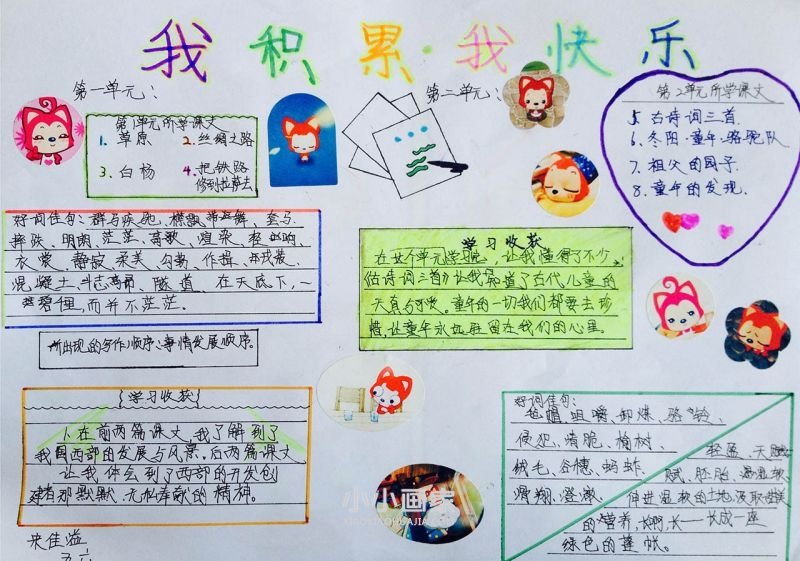 我积累·我快乐
第一单元：
第1单元所学课文
1. 草原 2. 丝绸之路
3. 白杨 4. 把铁路
修到拉萨去
好词佳句：群马疾驰、襟飘带舞、套马
摔跤、明朗 茫茫、高歌、渲染、
衣裳、静寂 柔美、勾勒
混凝土、隧道 在天底下，一
碧千里，而并不茫茫。
所出现的写作顺序：事情发展顺序。
学习收获
在前两篇课文，我了解到了
我国西部的发展与风景。后两篇课文
让我体会到了西部的开发创
建者那默默、无私奉献的精神。
第二单元：
第2单元所学课文
5. 古诗词三首
6. 冬阳·童年·骆驼队
7. 祖父的园子
8. 童年的发现.
学习收获
在这个单元学完，让我懂得了不少。
《古诗词三首》让我知道了古代儿童的
天真与。童年的一切我们都要去珍
惜，让童年永远驻留在我们的心里。
好词佳句：
毡帽、咀嚼、卸煤、骆 铃、
侵犯、清脆、榆树
绒毛、谷穗、蚂蚱
滑翔、澄澈、
轻盈、天赋
胚胎、温湿
伸进湿软的土地汲取
的营养，长啊，长——长成一座
绿色的蓬帐。
小小画家
XIAOXIAOHUAJIA